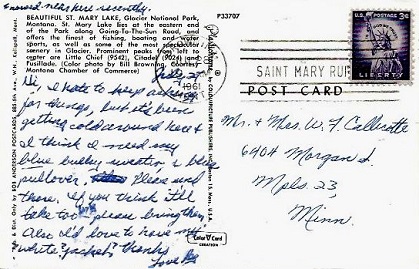 around near here recently.
P33707
BEAUTIFUL ST. MARY LAKE, Glacier National Park,
Montana. St. Mary Lake lies at the eastern end
of the Park along Going-To-The-Sun Road, and
offers the finest of fishing, boating and water
sports, as well as some of the most spectacular
scenery in Glacier. Prominent peaks from left to
are Little Chief (9542), Citadel (9024) and
Fusillade. (Color Photo by Bill Browning, Courtesy
Montana Chamber of Commerce)
1961
Hi, I hate to keep asking
for things, but it's been
getting cold around here &
I think I need my
blue bulky sweater, & beige
pullover. Please send
them. If you think it'll
take too please bring them.
Also I'd love to have my
white jacket. thanks
Love
SAINT MARY
U.S. POSTAGE 3¢
LIBERTY
POST CARD
Mr. & Mrs. W. F.
6404 Morgan S.
Mpls. 23,
Minn.
Color Card
CREATION